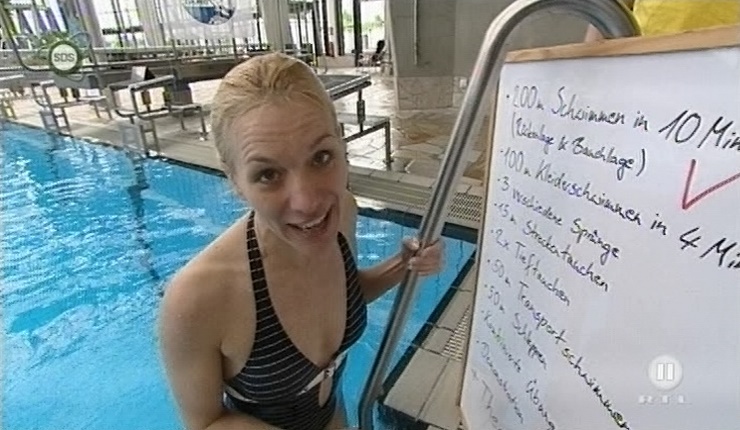 SOS
· 200m Schwimmen in 10 Min
(Rückenlage & Bauchlage)
· 100m Kleiderschwimmen in 4 Min
· 3 verschiedene Sprünge
· 15m Streckentauchen
· 2x Tieftauchen
· 50m Transportschwimmen
· 50m Schleppen
· Kombinierte Übung
RTL II